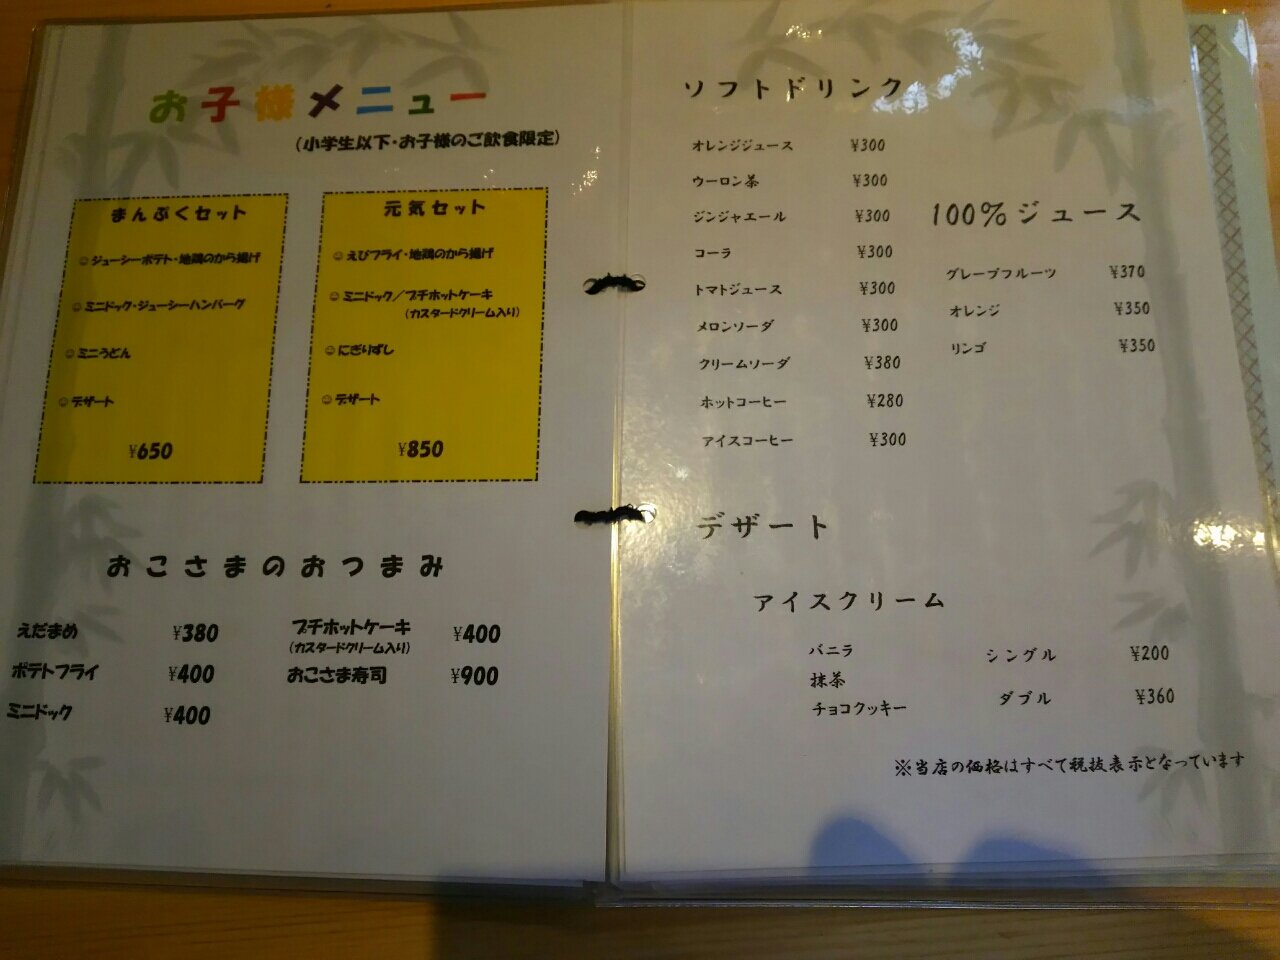 お子様メニュー
(小学生以下・お子様のご飲食限定)
まんぷくセット
☺ジューシーポテト・地鶏のから揚げ
☺ミニドック・ジューシーハンバーグ
☺ミニうどん
☺デザート
¥650
元気セット
☺えびフライ・地鶏のから揚げ
☺ミニドック／プチホットケーキ
(カスタードクリーム入り)
☺にぎりずし
☺デザート
¥850
おこさまのおつまみ
えだまめ ¥380
ポテトフライ ¥400
ミニドック ¥400
プチホットケーキ ¥400
(カスタードクリーム入り)
おこさま寿司 ¥900
ソフトドリンク
オレンジジュース ¥300
ウーロン茶 ¥300
ジンジャエール ¥300
コーラ ¥300
トマトジュース ¥300
メロンソーダ ¥300
クリームソーダ ¥380
ホットコーヒー ¥280
アイスコーヒー ¥300
100%ジュース
グレープフルーツ ¥370
オレンジ ¥350
リンゴ ¥350
デザート
アイスクリーム
バニラ
抹茶
チョコクッキー
シングル ¥200
ダブル ¥360
※当店の価格はすべて税抜表示となっています